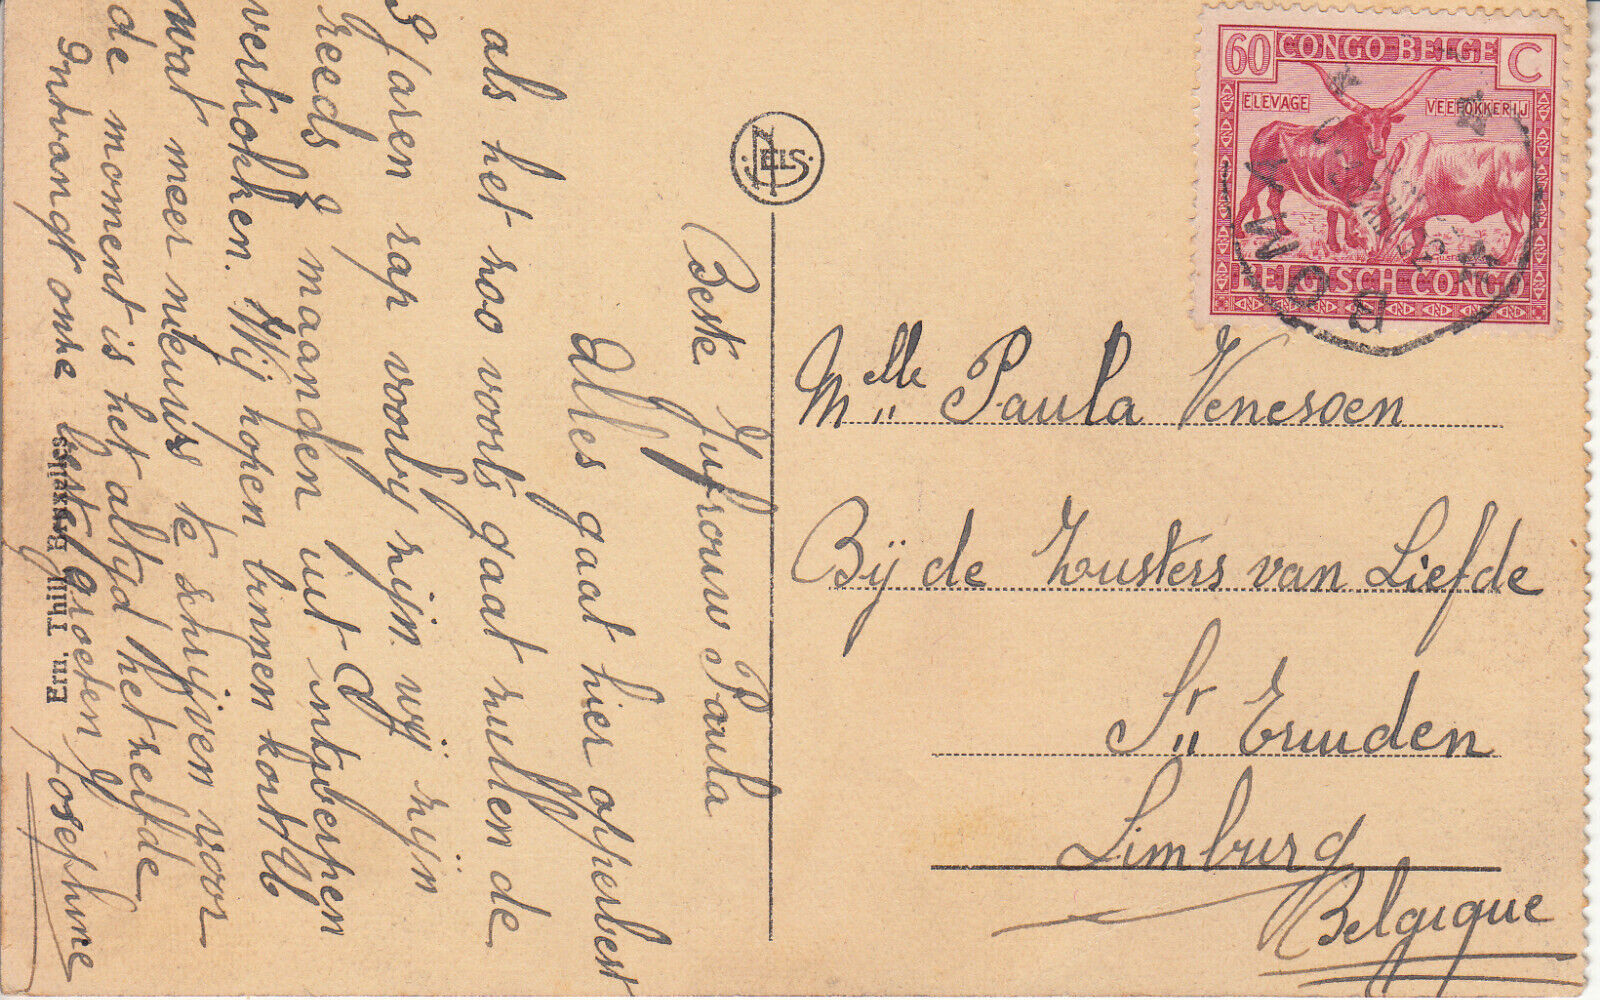 Beste Jufrouw Paula
Alles gaat hier opperbest
als het zoo voorts gaat zullen de
3 Jaren rap voorbij zijn. wij zijn
reeds 2 maanden uit Antwerpen
vertrokken. Wij hopen binnen kort U
wat meer nieuws te schrijven voor
de moment is het altijd hetzelfde
Intvangt onze beste groeten
Josephine
Ern. Thill, Bruxelles
NELS
60 CONGO BELGE C
ELEVAGE VEEFOKKERIJ
BELGISCH CONGO
BOMA
Melle Paula Venesoen
Bij de Zusters van Liefde
St Truiden
Limburg
Belgique